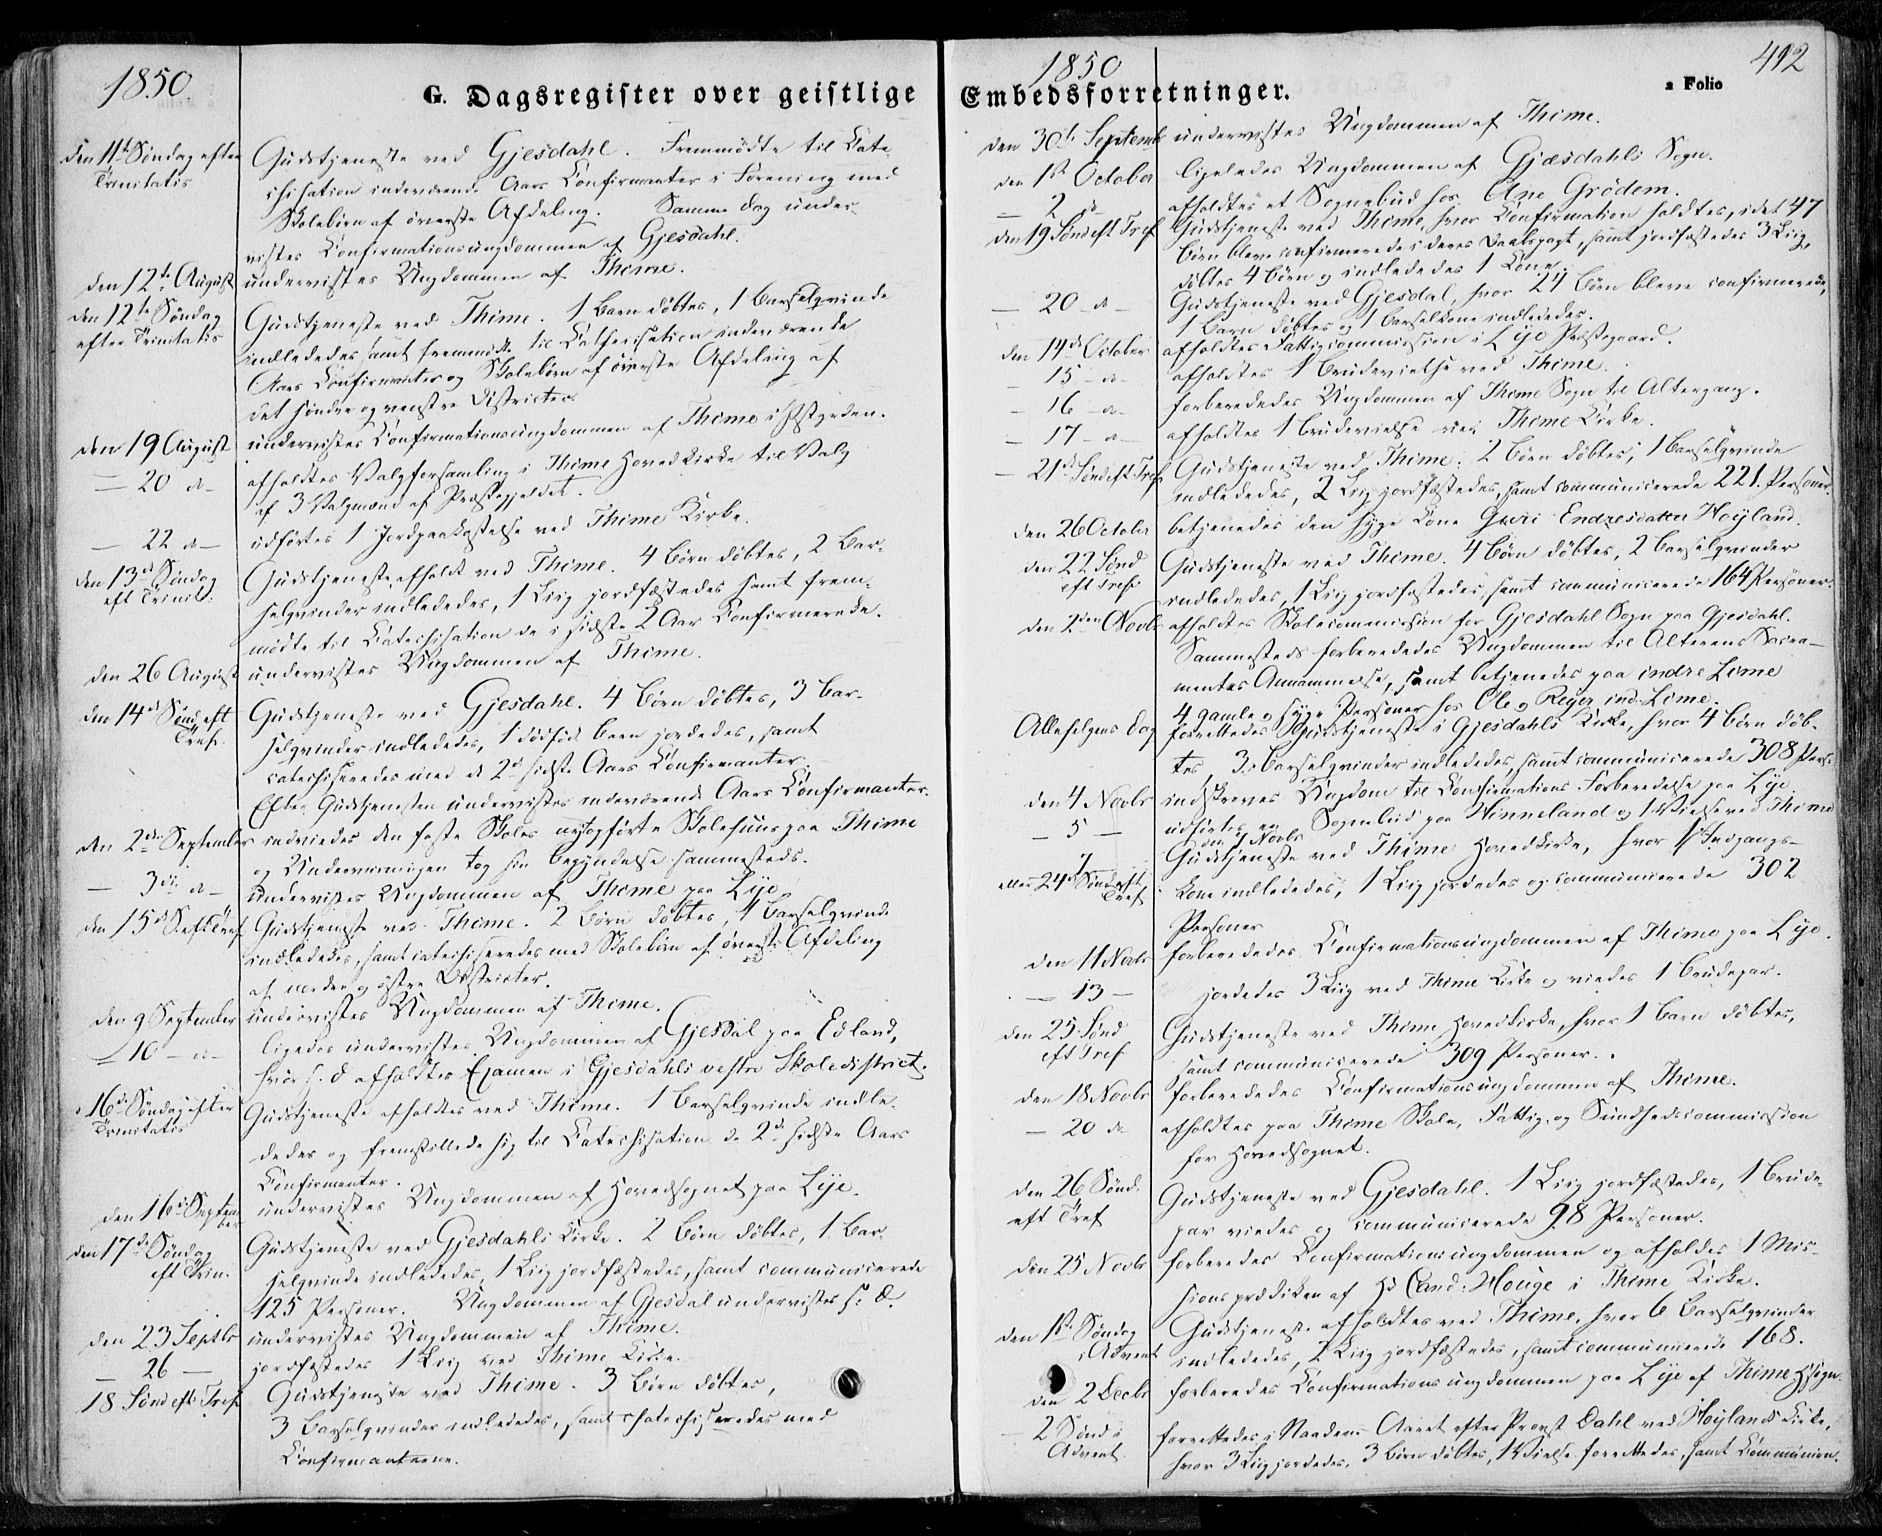 1850
G. Dagsregister over geistlige
den 11te Søndag efter Trinitatis
Gudstjeneste ved Gjesdahl. Fremmødte til Cate-
chisation indeværende Aars Confirmanter i Forening med
Skolebørn af øverste Afdeling. Samme Dag under-
vistes Confirmationsungdommen af Gjesdahl.
den 12te August undervistes Ungdommen af Thime.
den 12te Søndag efter Trinitatis
Gudstjeneste ved Thime. 1 Barn døbtes, 1 Barselqvinde
indlededes samt fremmødte til Cathechisation indeværende
Aars Confirmanter og Skolebørn af øverste Afdeling af
det søndre og vestre Districter.
den 19 August undervistes Confirmationsungdommen af Thime i
— 20 d— afholdtes Valgforsamling i Thime Hovedkirke til Valg
af 3 Valgmænd af Præstegjeldet.
— 22 d— udførtes 1 Jordpaakastelse ved Thime Kirke.
den 13de Søndag eft Trinit.
Gudstjeneste afholdt ved Thime. 4 Børn døbtes, 2 Bar-
selqvinder indlededes, 1 Liig jordfæstedes samt frem-
mødte til Catechisation de i sidste 2 Aar Confirmerede.
den 26 August undervistes Ungdommen af Thime.
den 14de Sønd eft Tref.
Gudstjeneste ved Gjesdahl. 4 Børn døbtes, 3 Bar-
selqvinder indlededes, 1 dødfød Barn jordedes, samt
catechiseredes med de 2de sidste Aars Confirmanter.
Efter Gudstjenesten undervistes indeværende Aars Confirmanter.
den 2den September indviedes den faste Skoles nyopførte Skolehuus paa Thime
og Undervisningen tog sin Begyndelse sammesteds.
— 3die d— undervistes Ungdommen af Thime paa Lye.
den 15de S. eft Tref
Gudstjeneste ved Thime. 2 Børn døbtes, 1 Barselqvinde
indlededes, samt catechiseredes med Skolebørn af øverste Afdeling
af nordre og østre Districter.
den 9 September undervistes Ungdommen af Thime.
— 10 — d— ligedes undervistes Ungdommen af Gjesdal paa Edland,
hvor s. D afholdtes Examen i Gjesdahls vestre Skoledistrict.
16de Søndag efter Trinitatis
Gudstjeneste afholdtes ved Thime. 1 Barselqvinde indle-
dedes og fremstillede sig til Catechisation de 2de sidste Aars
Confirmanter.
den 16de September undervistes Ungdommen af Hovedsognet paa Lye.
den 17de Søndag eft Trin.
Gudstjeneste ved Gjesdahls Kirke. 2 Børn døbtes, 1 Bar-
selqvinde indlededes, 1 Liig jordfæstedes, samt communicerede
125 Personer. Ungdommen af Gjesdal undervistes s: D.
den 23 Septbr undervistes Ungdommen af Thime.
— 26 — jordfæstedes 1 Liig ved Thime Kirke.
18 Sønd eft Tref
Gudstjeneste ved Thime. 3 Børn døbtes,
3 Barselqvinder indlededes, samt chatechiseredes med
Confirmanterne.
1850
Embedsforretninger.
a Folio
412
den 30te Septemb undervistes Ungdommen af Thime.
den 1ste October ligeledes Ungdommen af Gjæsdahls Sogn.
— 2 d— afholdtes et Sognebud hos Ane Grødem.
den 19 Sønd eft Tref Gudstjeneste ved Thime, hvor Confirmation holdtes, idet 47
Børn bleve confirmerede i deres Daabspagt, samt jordfæstedes 3 Liig,
døbtes 4 Børn og indlededes 1 Kone.
— 20 — d— Gudstjeneste ved Gjesdal, hvor 24 Børn bleve confirmerede,
1 Barn døbtes og 1 Barselkone indlededes.
den 14de October afholdtes Fattigcommission i Lye Præstegaard.
— 15 — d— afholdtes 1 Brudevielse ved Thime.
— 16 — d— forberededes Ungdommen af Thime Sogn til Altergang.
— 17 — d— afholdtes 1 Brudevielse ved Thime Kirke.
— 21de Sønd eft Tref Gudstjeneste ved Thime. 2 Børn døbtes, 1 Barselqvinde
indlededes, 2 Liig jordfæstedes, samt communicerede 221. Personer.
den 26 October betjenedes den syge Kone Guri Endresdatter Høyland.
den 22 Sønd eft Tref
Gudstjeneste ved Thime. 4 Børn døbtes, 2 Barselqvinder
indlededes, 1 Liig jordfæstedes, samt communicerede 164 Personer.
den 2den Novbr afholdtes Skolecommission for Gjesdahl Sogn paa Gjesdahl.
Sammesteds forberededes Ungdommen til Alterens Sacra-
mentes Annammelse, samt betjenedes paa indre Lime
4 gamle og syge Personer hos Ole og Reyer ind: Lime.
Allehelgens Dag forrettedes Gudstjeneste i Gjesdahls Kirke, hvor 4 Børn døb-
tes, 3 Barselqvinder indlededes, samt communicerede 308 Pers:
den 4 Novbr indskreves Ungdom til Confirmations Forberedelse paa Lye.
— 5 — udførtes en Sognebud paa Hinneland og 1 Vielse ved Thime
den 7 Novbr
eller 24de Sønd eft Tref
Gudstjeneste ved Thime Hovedkirke, hvor 1 Indgangs-
Kone indlededes, 1 Liig jordedes og communicerede 302
Personer
den 11 Novbr forberededes Confirmationsungdommen af Thime paa Lye.
— 13 — jordedes 3 Liig ved Thime Kirke og viedes 1 Brudepar.
den 25. Sønd eft Tref
Gudstjeneste ved Thime Hovedkirke, hvor 1 Barn døbtes,
samt communicerede 309 Personer.
den 18 Novbr forberededes Confirmationsungdommen af Thime.
— 20 d— afholdtes paa Thime Skole, Fattig- og Sundhedscommission
for Hovedsognet.
den 26 Sønd. eft Tref
Gudstjeneste ved Gjesdahl. 1 Liig jordfæstedes, 1 Brude-
par viedes og communicerede 98 Personer.
den 25 Novbr forberedes Confirmationsungdommen og afholdes 1 Mis-
sions prædiken af Hr Cand: Houge i Thime Kirke.
den 1ste Søndag i Advent
Gudstjeneste afholdtes ved Thime, hvor 6 Barselqvinder
indlededes, 2 Liig jordfæstedes, samt communicerede 168.
den 2 Decbr forberedes Confirmationsungdommen paa Lye af Thime Hsogn.
— 2 Sønd i Advent.
forrettedes i Naadens Aaret efter Provst Dahl ved Høylands Kirke,
hvor 3 Liig jordedes, 3 Børn døbtes, 1 Vielse forrettedes, samt Communion.